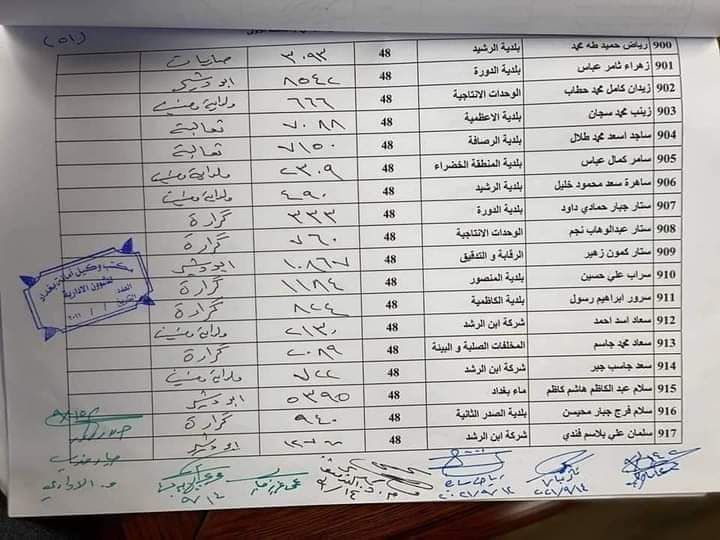 (٥١)
900 رياض حميد طه محمد بلدية الرشيد 48 ٣٠٩٣ صابيات
901 زهراء ثامر عباس بلدية الدورة 48 ٨٥٤٢ ابو دشير
902 زيدان كامل محمد حطاب الوحدات الانتاجية 48 ٦٦٦
903 زينب محمد سجان بلدية الاعظمية 48 ٧٠٨٨
904 ساجد اسعد محمد طلال بلدية الرصافة 48 ٧١٥٠
905 سامر كمال عباس بلدية المنطقة الخضراء 48 ٢٣٠٩
906 ساهرة سعد محمود خليل بلدية الرشيد 48 ٤٩٠
907 ستار جبار حمادي داود بلدية الدورة 48 ٣٣٣ كرارة
908 ستار عبدالوهاب نجم الوحدات الانتاجية 48 ٧٦٠ كرارة
909 ستار كمون زهير الرقابة و التدقيق 48 ١٠٨٦٧ ابو دشير
910 سراب علي حسين بلدية المنصور 48 ١١٨٤ كرارة
911 سرور ابراهيم رسول بلدية الكاظمية 48 ٨٢٤ كرارة
912 سعاد اسد احمد شركة ابن الرشد 48 ٢١٣٠
913 سعاد محمد جاسم المخلفات الصلبة و البيئة 48 ٢٠٨٩ كرارة
914 سعد جاسب جبر شركة ابن الرشد 48 ٧٢٢
915 سلام عبد الكاظم هاشم كاظم ماء بغداد 48 ٥٣٩٥ ابو دشير
916 سلام فرج جبار محيسن بلدية الصدر الثانية 48 ٩٤٠ كرارة
917 سلمان علي بلاسم فندي شركة ابن الرشد 48 ابو دشير
مكتب وكيل امانة بغداد
للشؤون الادارية
العدد
التاريخ / / ٢٠٢١
٢٠٢١/٩/١٤
٢٠٢١/٩/١٤
٩/١٤
٩/١٤